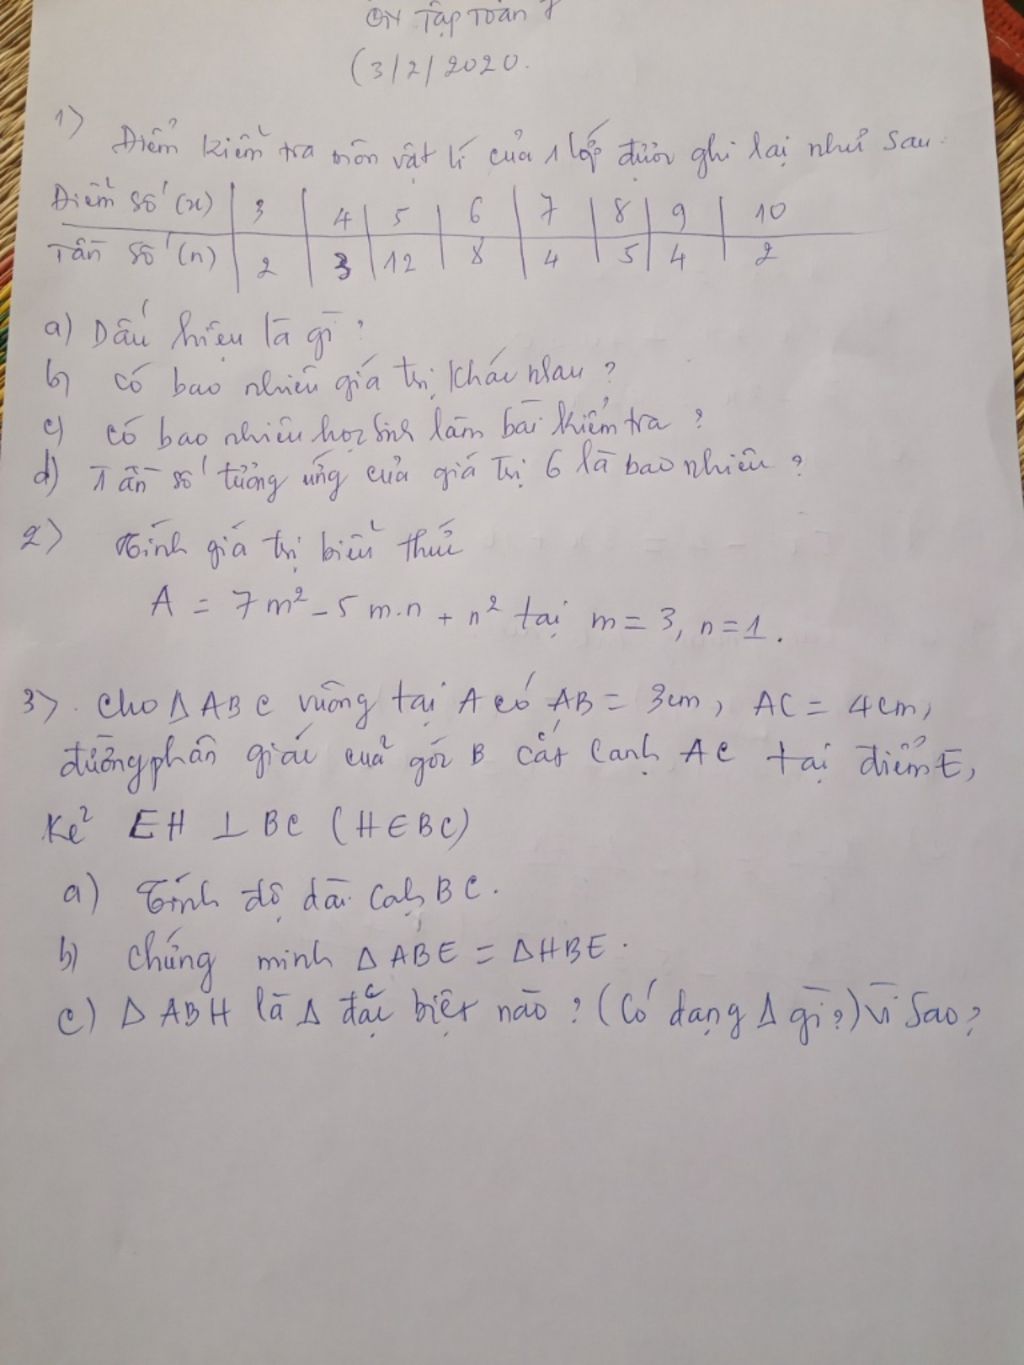 Ôn Tập Toán 7
(3/2/2020.
1) Điểm kiểm tra môn vật lí của 1 lớp được ghi lại như sau:
Điểm số (x) | 3 | 4 | 5 | 6 | 7 | 8 | 9 | 10
Tần số (n) | 2 | 3 | 12 | 8 | 4 | 5 | 4 | 2
a) Dấu hiệu là gì?
b) có bao nhiêu giá trị khác nhau?
c) có bao nhiêu học sinh làm bài kiểm tra?
d) Tần số tương ứng của giá trị 6 là bao nhiêu?
2) Tính giá trị biểu thức
A = 7m² - 5m.n + n² tại m = 3, n = 1.
3). Cho Δ ABC vuông tại A có AB = 3cm, AC = 4cm,
đường phân giác của góc B cắt cạnh AC tại điểm E,
Kẻ EH ⊥ BC (H ∈ BC)
a) Tính độ dài cạh BC.
b) Chứng minh Δ ABE = Δ HBE.
c) Δ ABH là Δ đặc biệt nào? (Có dạng Δ gì?) vì sao?